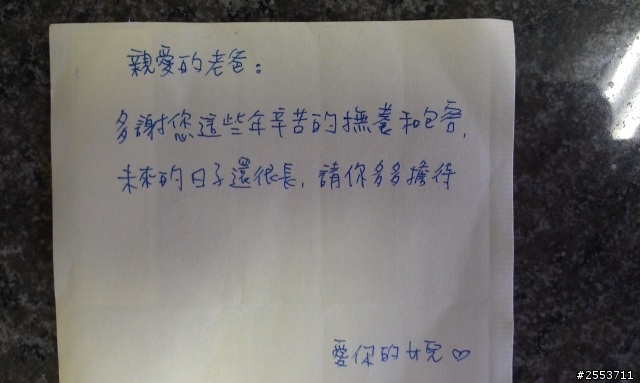 親愛的老爸：
多謝您這些年辛苦的撫養和包容,
未來的日子還很長, 請你多多擔待
愛你的女兒♡
#2553711